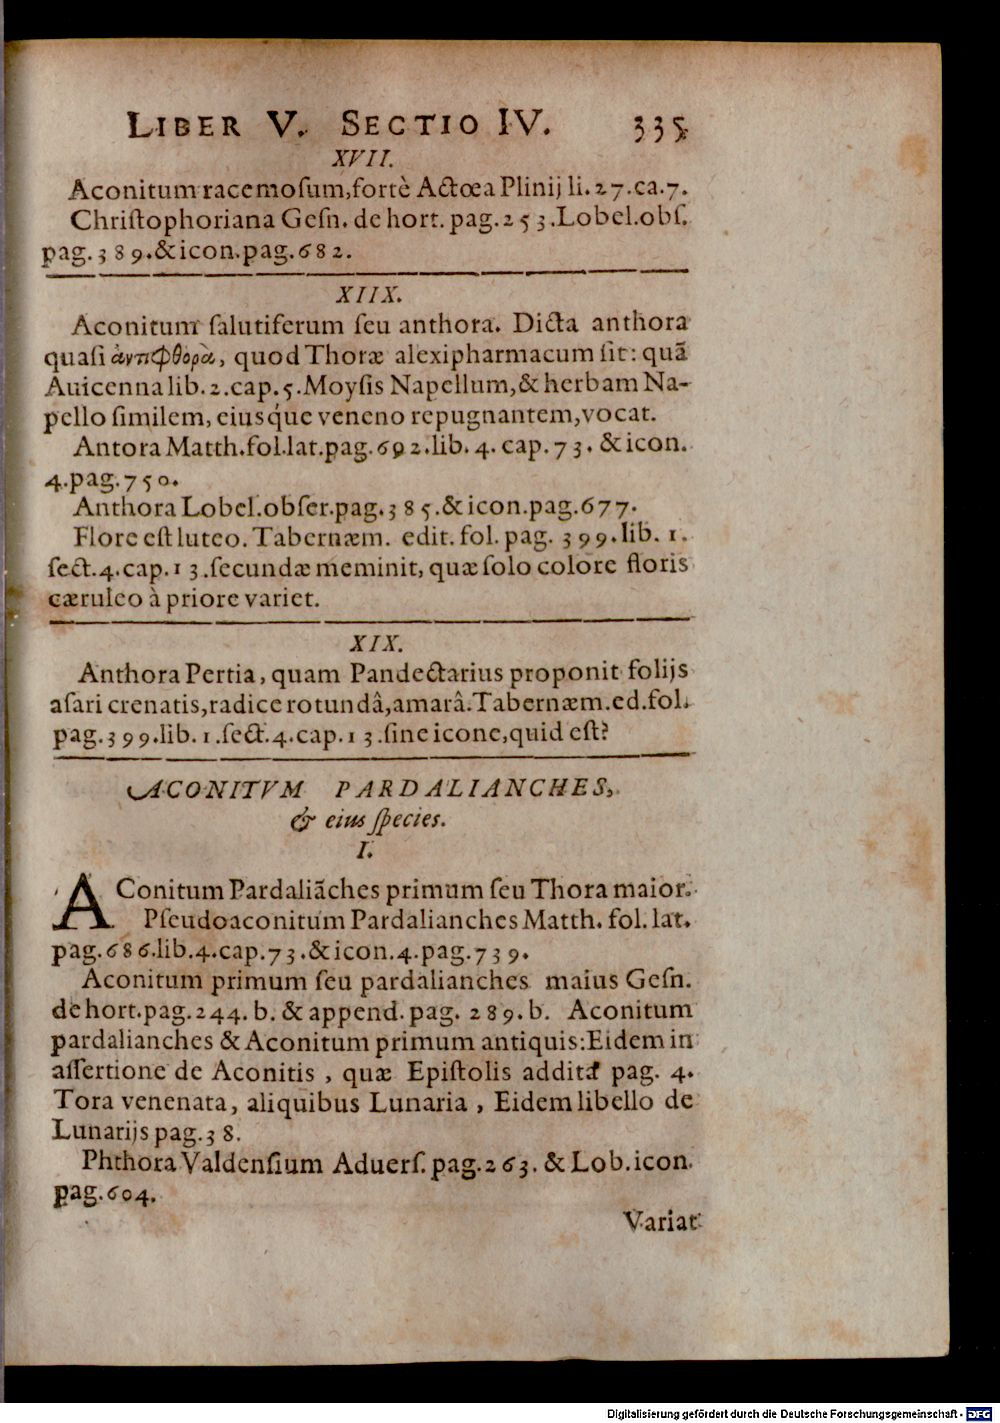 LIBER V. SECTIO IV. 335
XVII.
Aconitum racemoſum, fortè Actœa Plinij li. 27. ca. 7.
Chriſtophoriana Geſn. de hort. pag. 253. Lobel. obſ.
pag. 389. & icon. pag. 682.
XIIX.
Aconitum ſalutiferum ſeu anthora. Dicta anthora
quaſi ἀντιφθορὰ, quod Thoræ alexipharmacum ſit: quã
Auicenna lib. 2. cap. 5. Moyſis Napellum, & herbam Na-
pello ſimilem, eiusq́ue veneno repugnantem, vocat.
Antora Matth. fol. lat. pag. 692. lib. 4. cap. 73. & icon.
4. pag. 750.
Anthora Lobel. obſer. pag. 385. & icon. pag. 677.
Flore eſt luteo. Tabernæm. edit. fol. pag. 399. lib. 1.
ſect. 4. cap. 13. ſecundæ meminit, quæ ſolo colore floris
cæruleo à priore variet.
XIX.
Anthora Pertia, quam Pandectarius proponit folijs
aſari crenatis, radice rotundâ, amarâ. Tabernæm. ed. fol.
pag. 399. lib. 1. ſect. 4. cap. 13. ſine icone, quid eſt?
ACONITVM PARDALIANCHES,
& eius ſpecies.
I.
AConitum Pardaliãches primum ſeu Thora maior.
Pſeudoaconitum Pardalianches Matth. fol. lat.
pag. 686. lib. 4. cap. 73. & icon. 4. pag. 739.
Aconitum primum ſeu pardalianches maius Geſn.
de hort. pag. 244. b. & append. pag. 289. b. Aconitum
pardalianches & Aconitum primum antiquis: Eidem in
aſſertione de Aconitis, quæ Epiſtolis addita pag. 4.
Tora venenata, aliquibus Lunaria, Eidem libello de
Lunarijs pag. 38.
Phthora Valdenſium Aduerſ. pag. 263. & Lob. icon.
pag. 604.
Variat
Digitalisierung gefördert durch die Deutsche Forschungsgemeinschaft - DFG